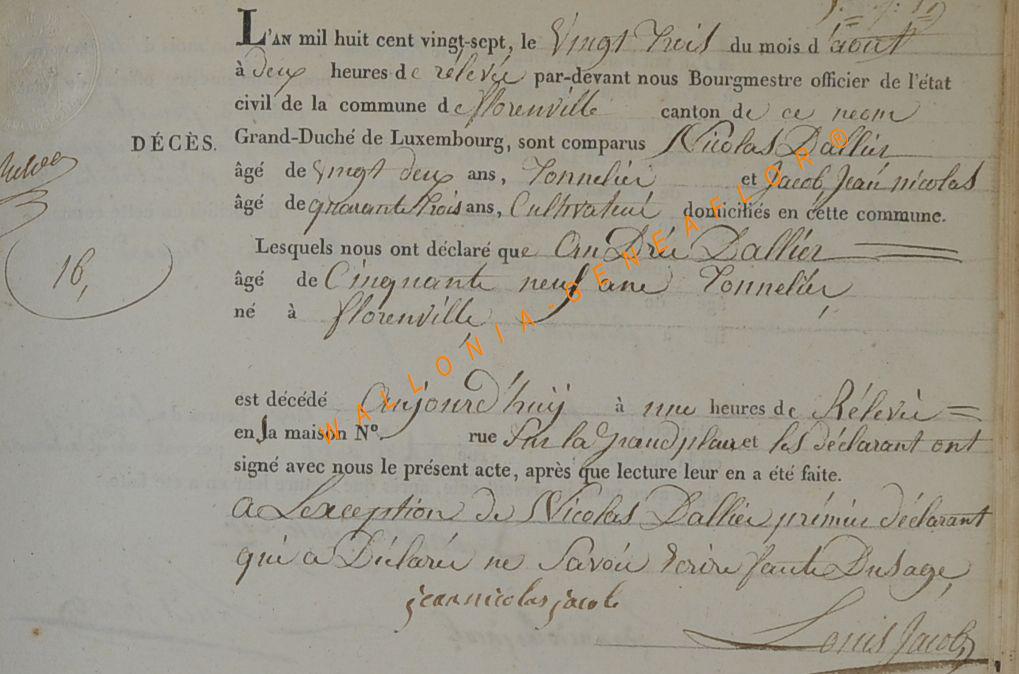 L'AN mil huit cent vingt-sept, le Vingt trois du mois d'aout
à deux heures de rélevée par-devant nous Bourgmestre officier de l'état
civil de la commune de florenville canton de ce neom
DÉCÈS. Grand-Duché de Luxembourg, sont comparus Nicolas Dallier
âgé de vingt deux ans, Tonnelier et Jacob Jean nicolas
âgé de quarante trois ans, Cultivateur domiciliés en cette commune.
Lesquels nous ont déclaré que AnDrée Dallier
âgé de Cinquante neuf ans Tonnelier
16,
né à florenville
est décédé Aujourd'huy à une heures de Rélevée
en sa maison N°. rue Sur la grand place et les déclarant ont
signé avec nous le présent acte, après que lecture leur en a été faite.
a Lexception de Nicolas Dallier prémier déclarant
qui a Déclaré ne Savoir Ecrire faute Dusage,
jean nicolas jacob
Louis Jacob
WALLONIA-GENEAFLOR®